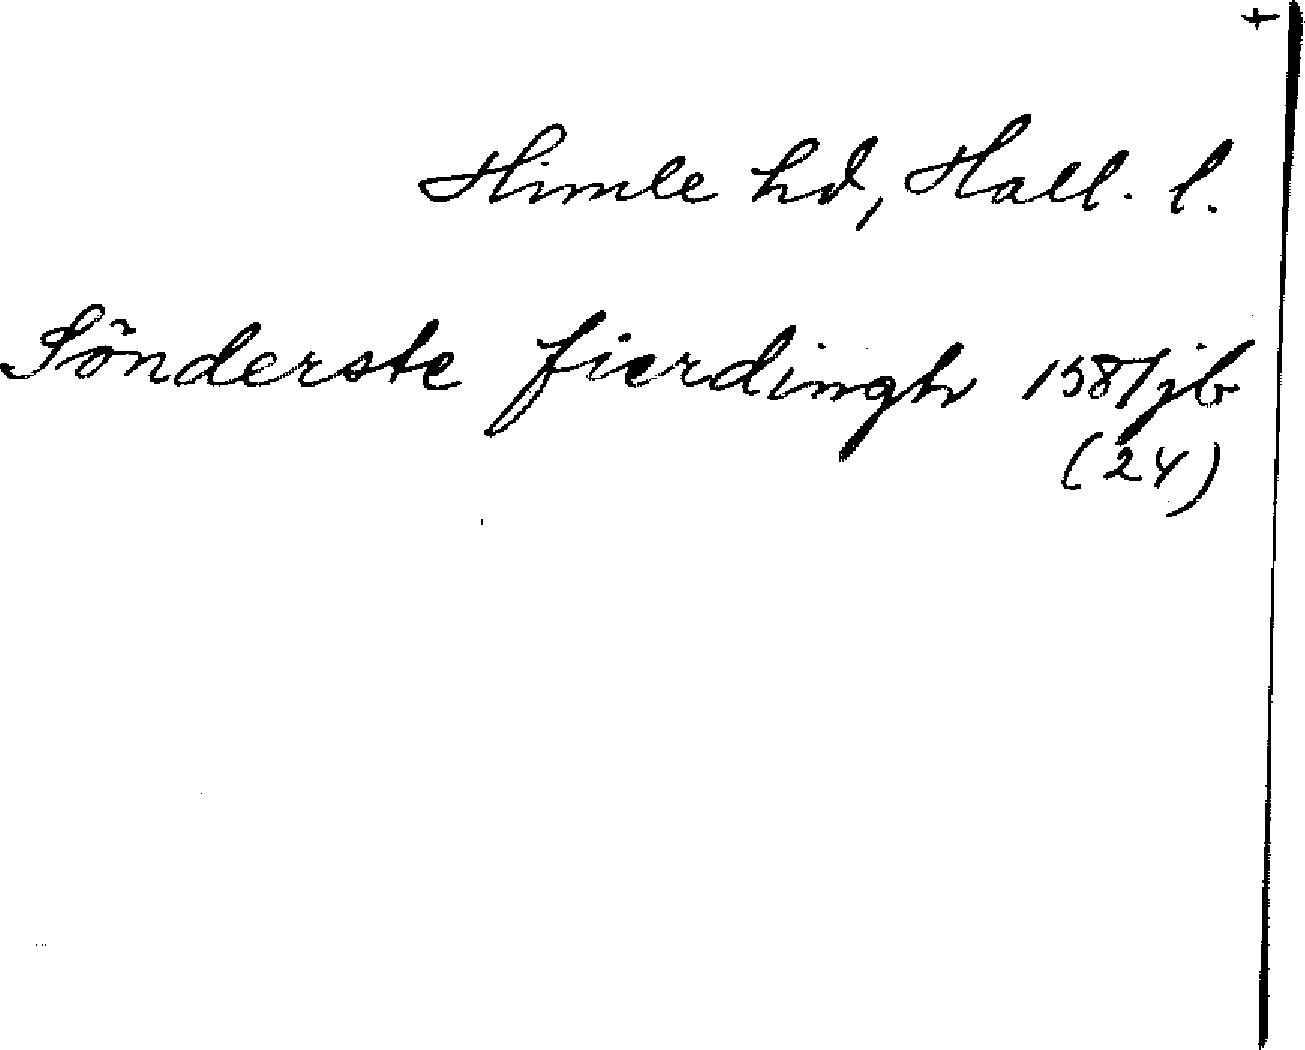 Himle hd, Hall. l.
Sönderste fierdingh 1587 jb
(24)